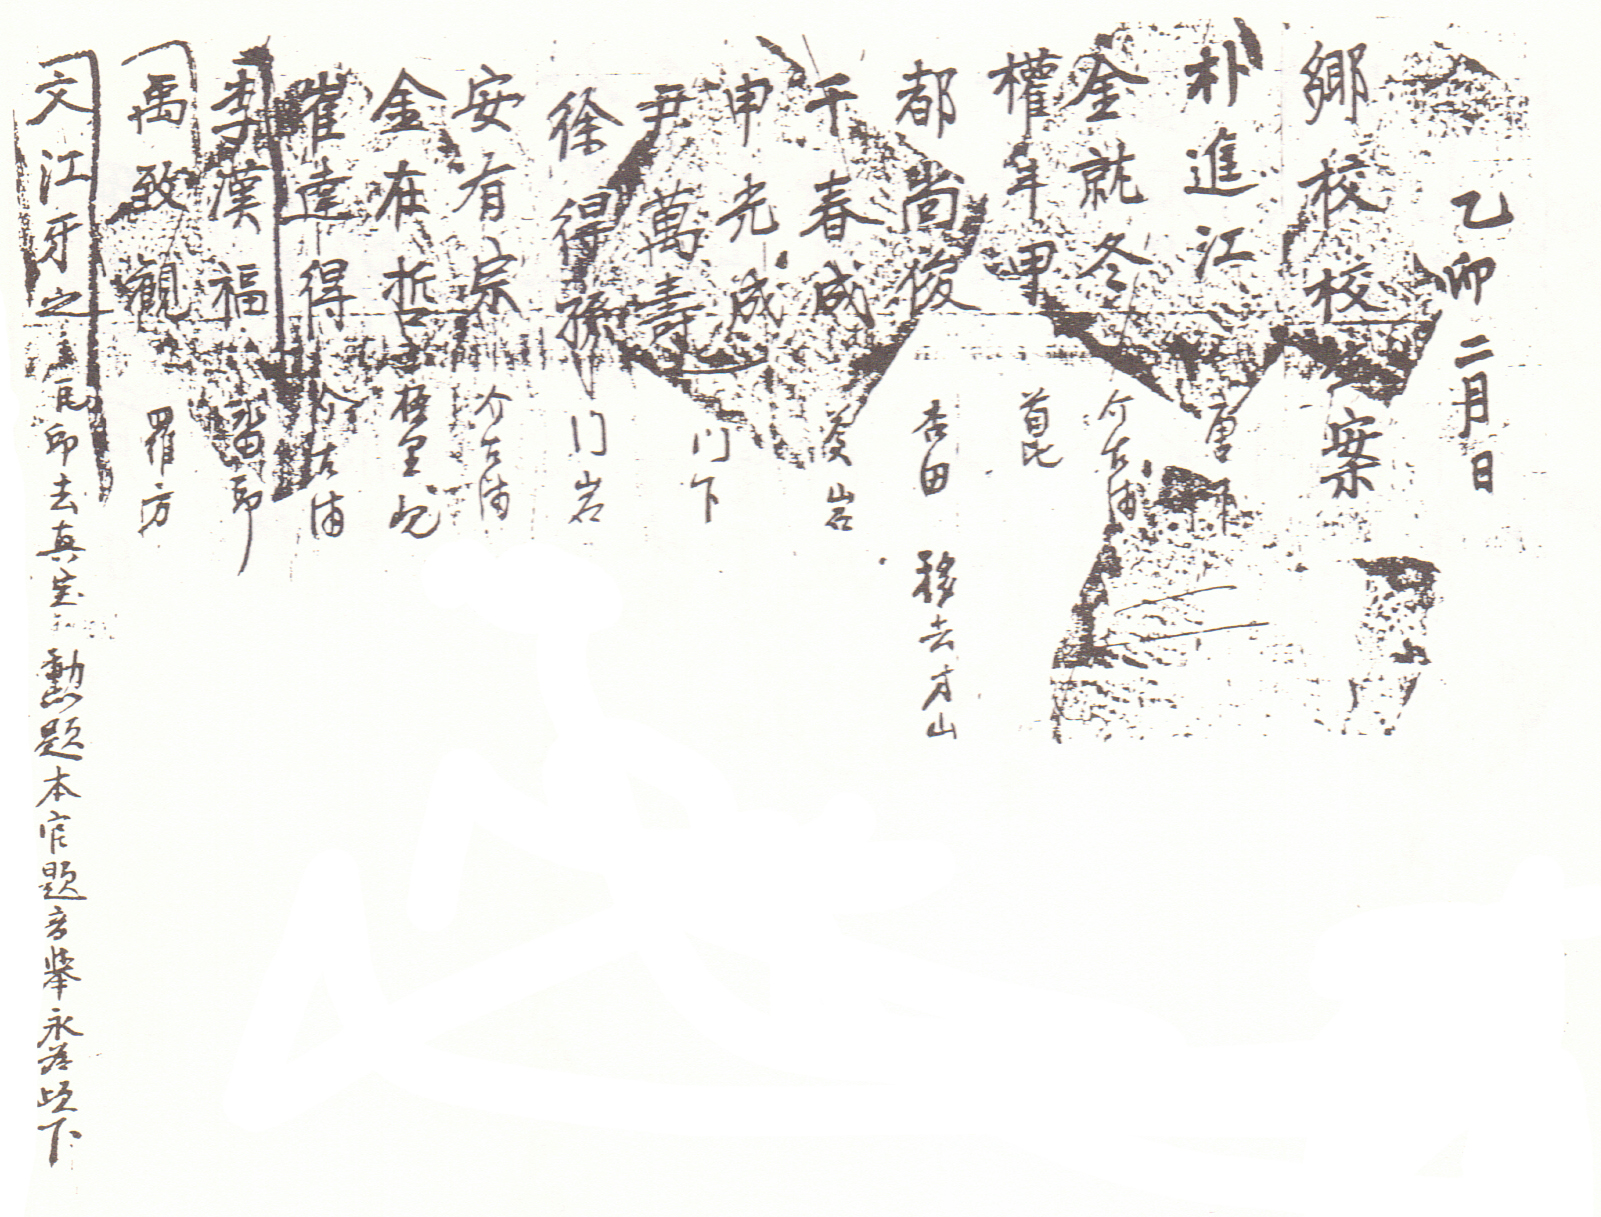 乙卯二月日
鄕校校案
朴進江
金就冬 介古浦
權年甲 首比
都尙俊 杏田 移去才山
千春成 岩
申光成 门下
尹萬壽
徐得孫 门岩
安有宗 介古浦
金在哲
崔達得 介古浦
李漢福
禹致觀 羅方
文江牙之 去真宝 勳題本官題音擧永爲頉下